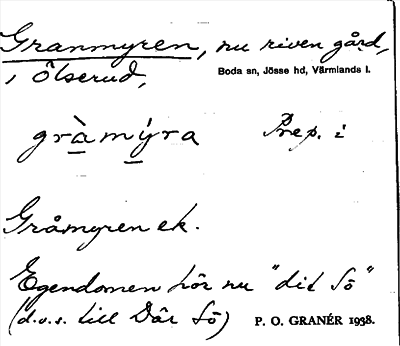 Granmyren, nu riven gård,
i Ölserud,
Boda sn, Jösse hd, Värmlands l.
gràmýra Prep. i
Gråmyren ek.
Egendomen hör nu "dit Sö"
(d.v.s. till Där Sö) P. O. GRANÉR 1938.